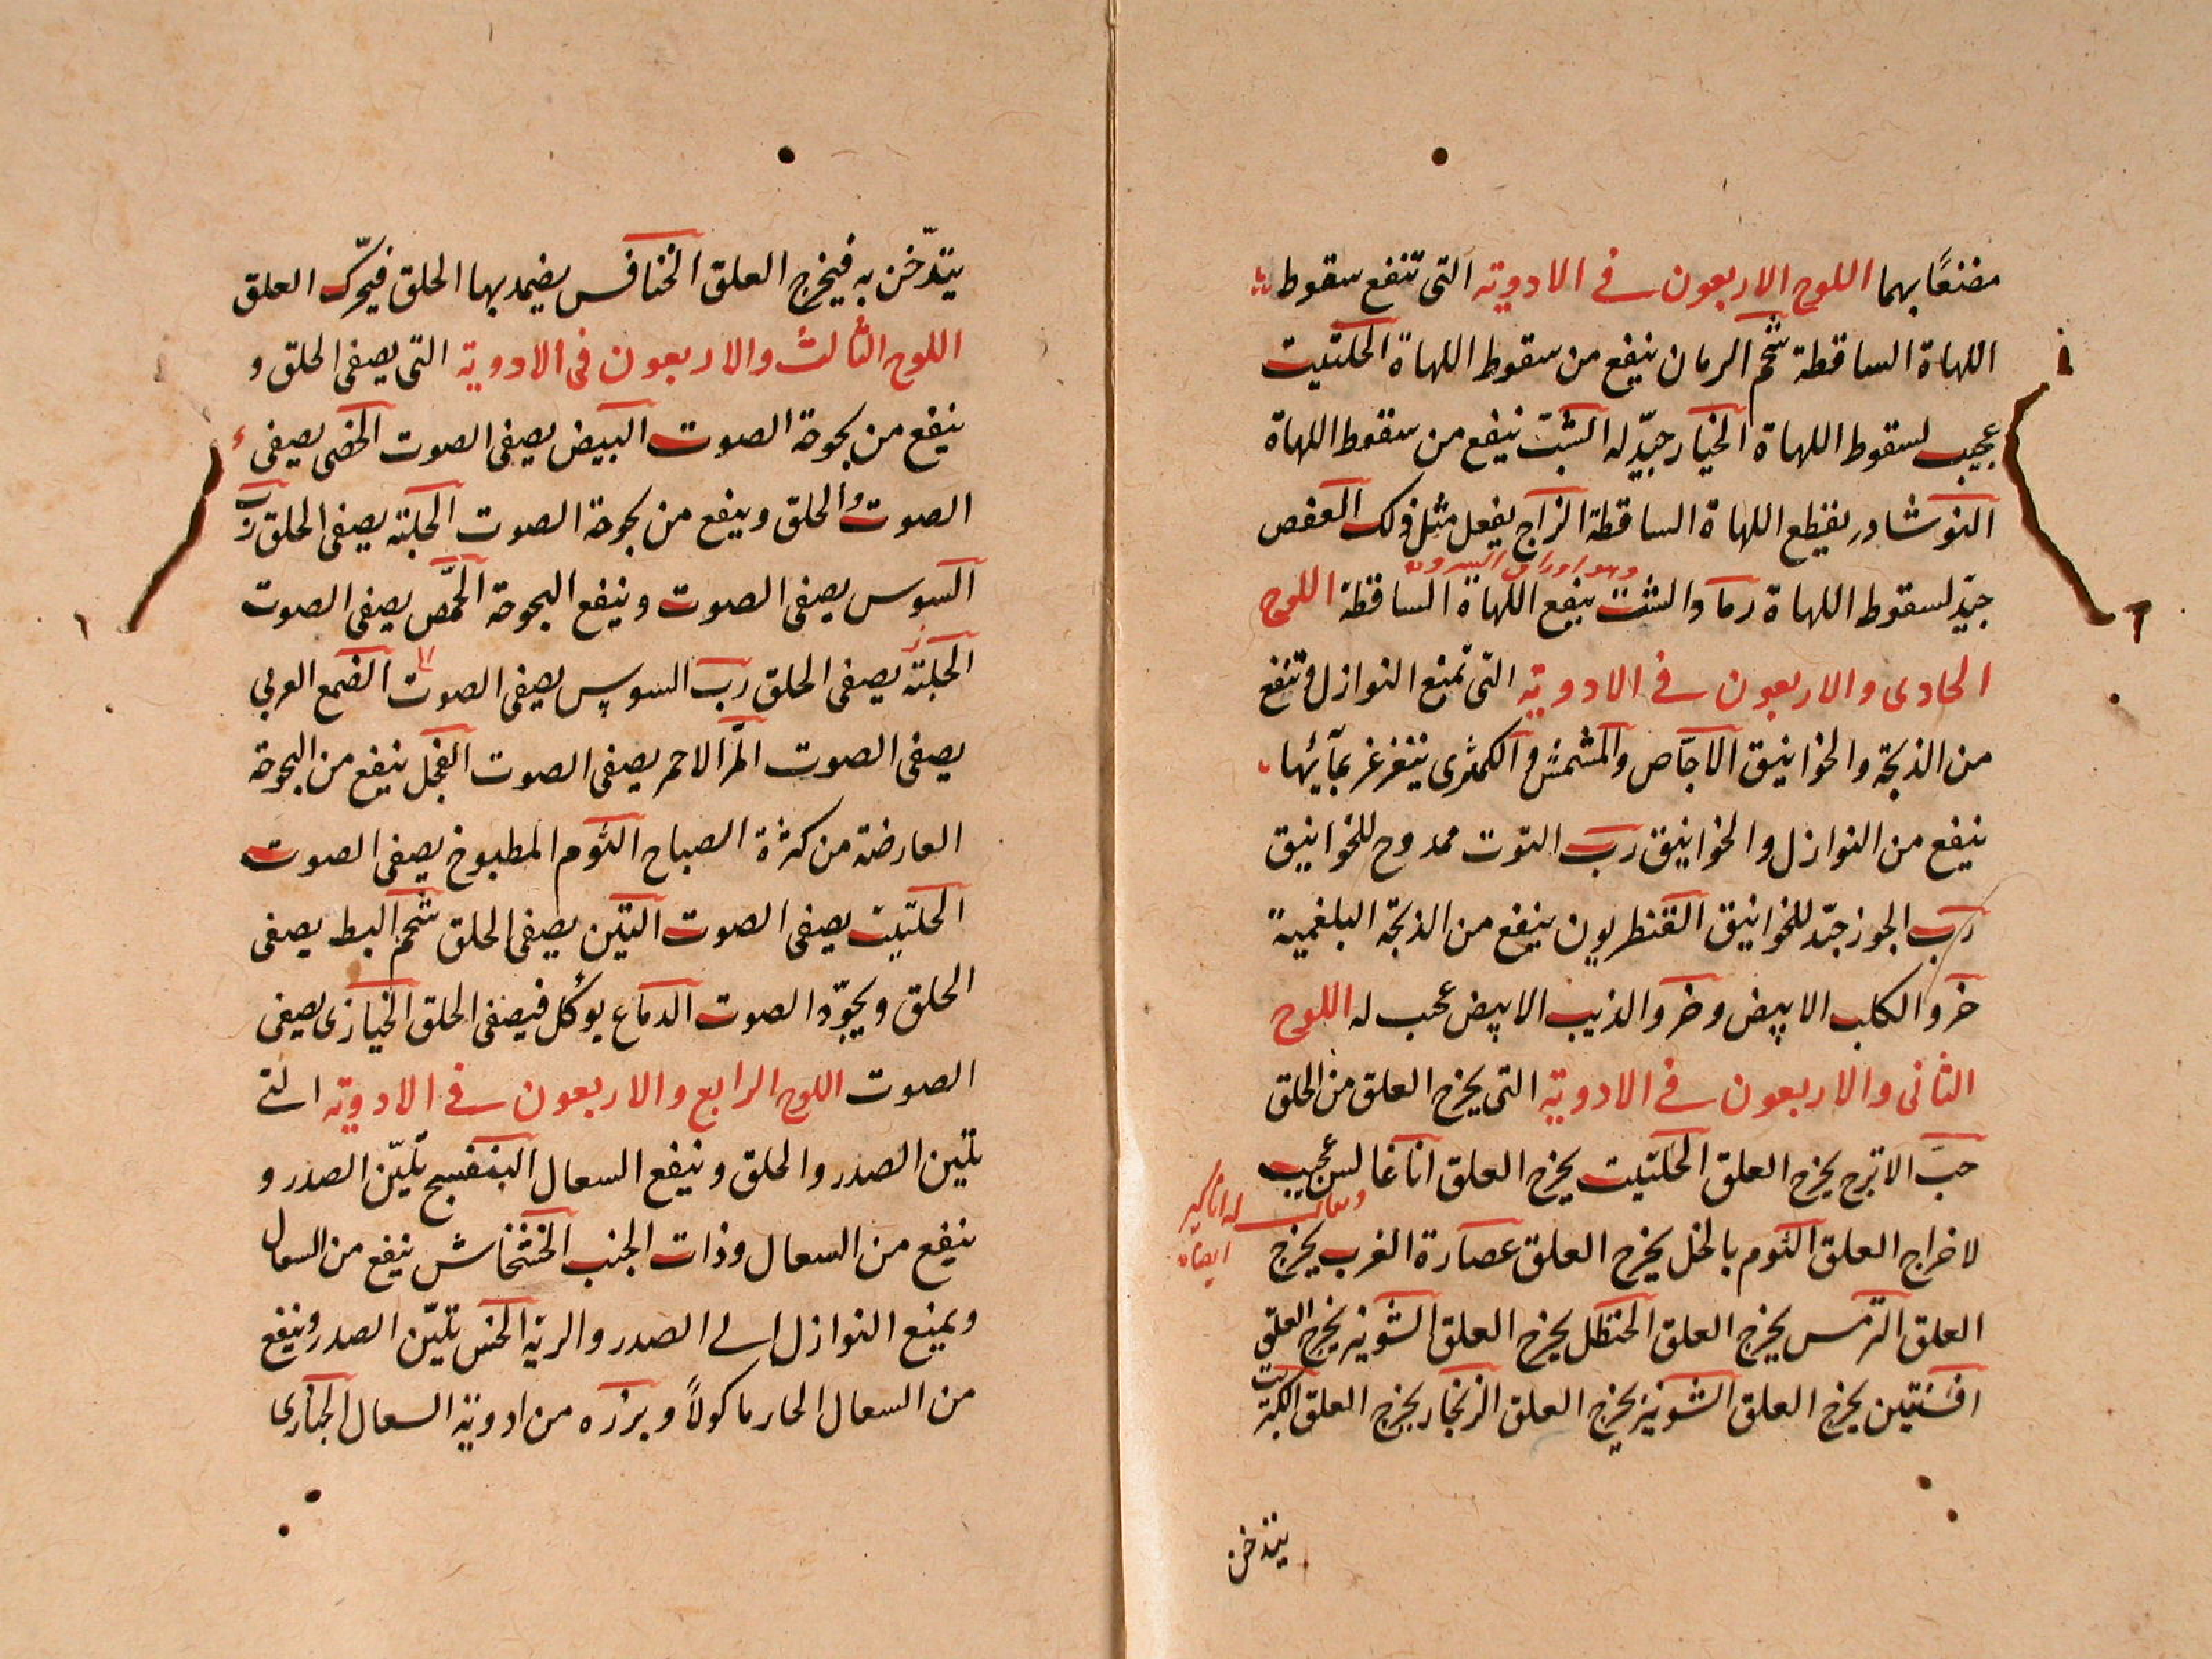 مضنعًا بهما اللوح الاربعون في الادوية التى تنفع سقوط
اللهاة الساقطة شحم الرمان ينفع من سقوط اللهاة الحلتيت
عجيب لسقوط اللهاة الخيار جيّد له الشبت ينفع من سقوط اللهاة
النوشادر يقطع اللهاة الساقطة الزاج يفعل مثل ذلك العفص
وهو اوراق
جيّد لسقوط اللهاة رماد الشبت ينفع اللهاة الساقطة اللوح
الحادى والاربعون في الادوية التى تمنع النوازل وتنفع
من الذبحة والخوانيق الاجّاص والمشمش والكمثرى يتغرغر بمآئها
ينفع من النوازل والخوانيق ربّ التوت ممدوح للخوانيق
ربّ الجوز جيّد للخوانيق القنطريون ينفع من الذبحة البلغمية
خرو الكلب الابيض وخرو الذيب الابيض عجب له اللوح
الثانى والاربعون في الادوية التى يخرج العلق من الحلق
حبّ الاترج يخرج العلق الحلتيت يخرج العلق اناغالس عجيب
ويقال له اناكير
ايضا
لاخراج العلق الثوم بالخل يخرج العلق عصارة الغرب يخرج
العلق الترمس يخرج العلق الحنظل يخرج العلق الشونيز يخرج العلق
افسنتين يخرج العلق الشونيز يخرج العلق الزنجار يخرج العلق الكبريت
يتدخن
يتدّخن به فيخرج العلق الخنافس يضمد بها الحلق فيحرّك العلق
اللوح الثالث والاربعون فى الادوية التى يصفى الحلق و
ينفع من بحوحة الصوت البيض يصفى الصوت الخصى يصفى
الصوت والحلق وينفع من بحوحة الصوت الحلبة يصفى الحلق ربّ
السوس يصفى الصوت وينفع البحوحة الحمّص يصفى الصوت
الحلبة يصفى الحلق ربّ السوس يصفى الصوت الصمغ العربي
يصفى الصوت المرّ الاحمر يصفى الصوت الفجل ينفع من البحوحة
العارضة من كثرة الصياح الثوم المطبوخ يصفى الصوت
الحلتيت يصفى الصوت التين يصفى الحلق شحم البط يصفى
الحلق ويجوّد الصوت الدماغ يوكل فيصفى الحلق الخبازى يصفى
الصوت اللوح الرابع والاربعون في الادوية التى
تلين الصدر والحلق وينفع السعال البنفسج يليّن الصدر و
ينفع من السعال وذات الجنب الخشخاش ينفع من السعال
ويمنع النوازل الى الصدر والرية الخس يليّن الصدر وينفع
من السعال الحار ماكولاً وبرزه من ادوية السعال الخبازى